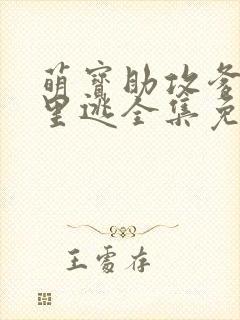 萌寳助攻爹
里逃全集免
王雪存